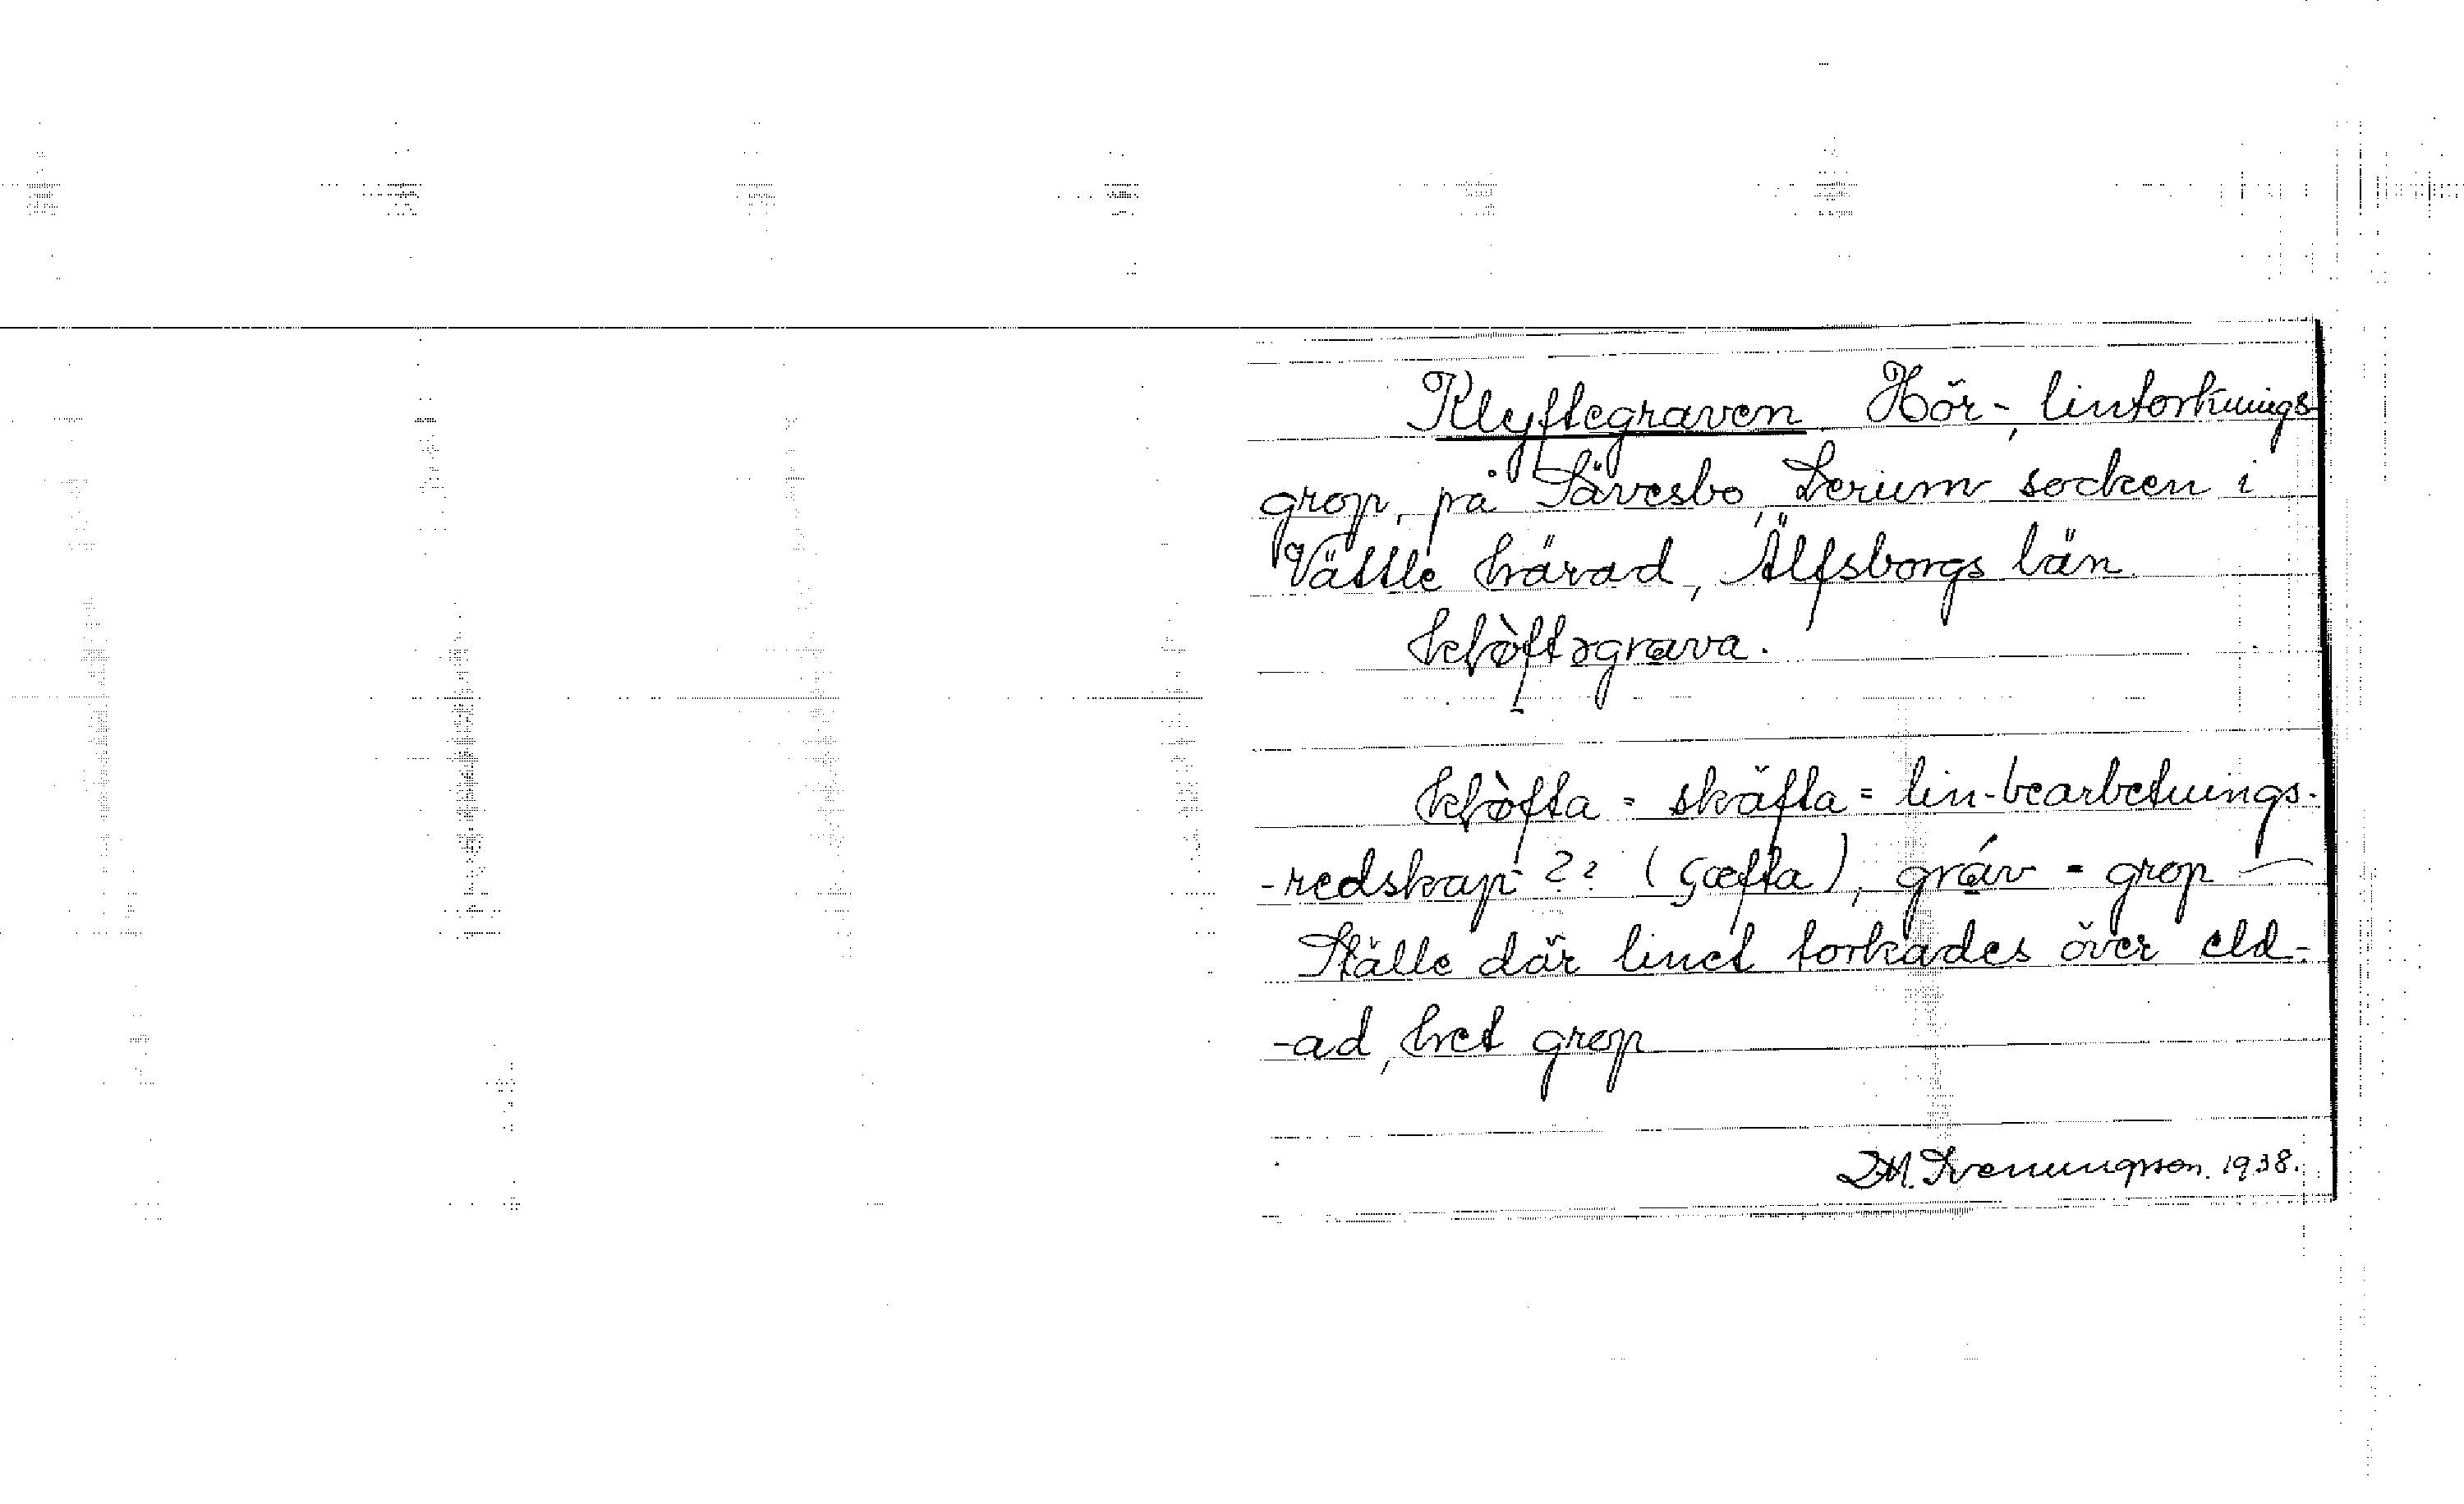 Klyftegraven. Hör-, lintorknings-
grop, på Sävesbo, Lerum socken i
Vättle härad, Älfsborgs län.
klø̀ftəgrava.
klø̀fta = skäfta = lin-bearbetnings-
-redskap ?? (ʂcæfta), gráv = grop —
Ställe där linet torkades över eld-
-ad, het grop
1938.